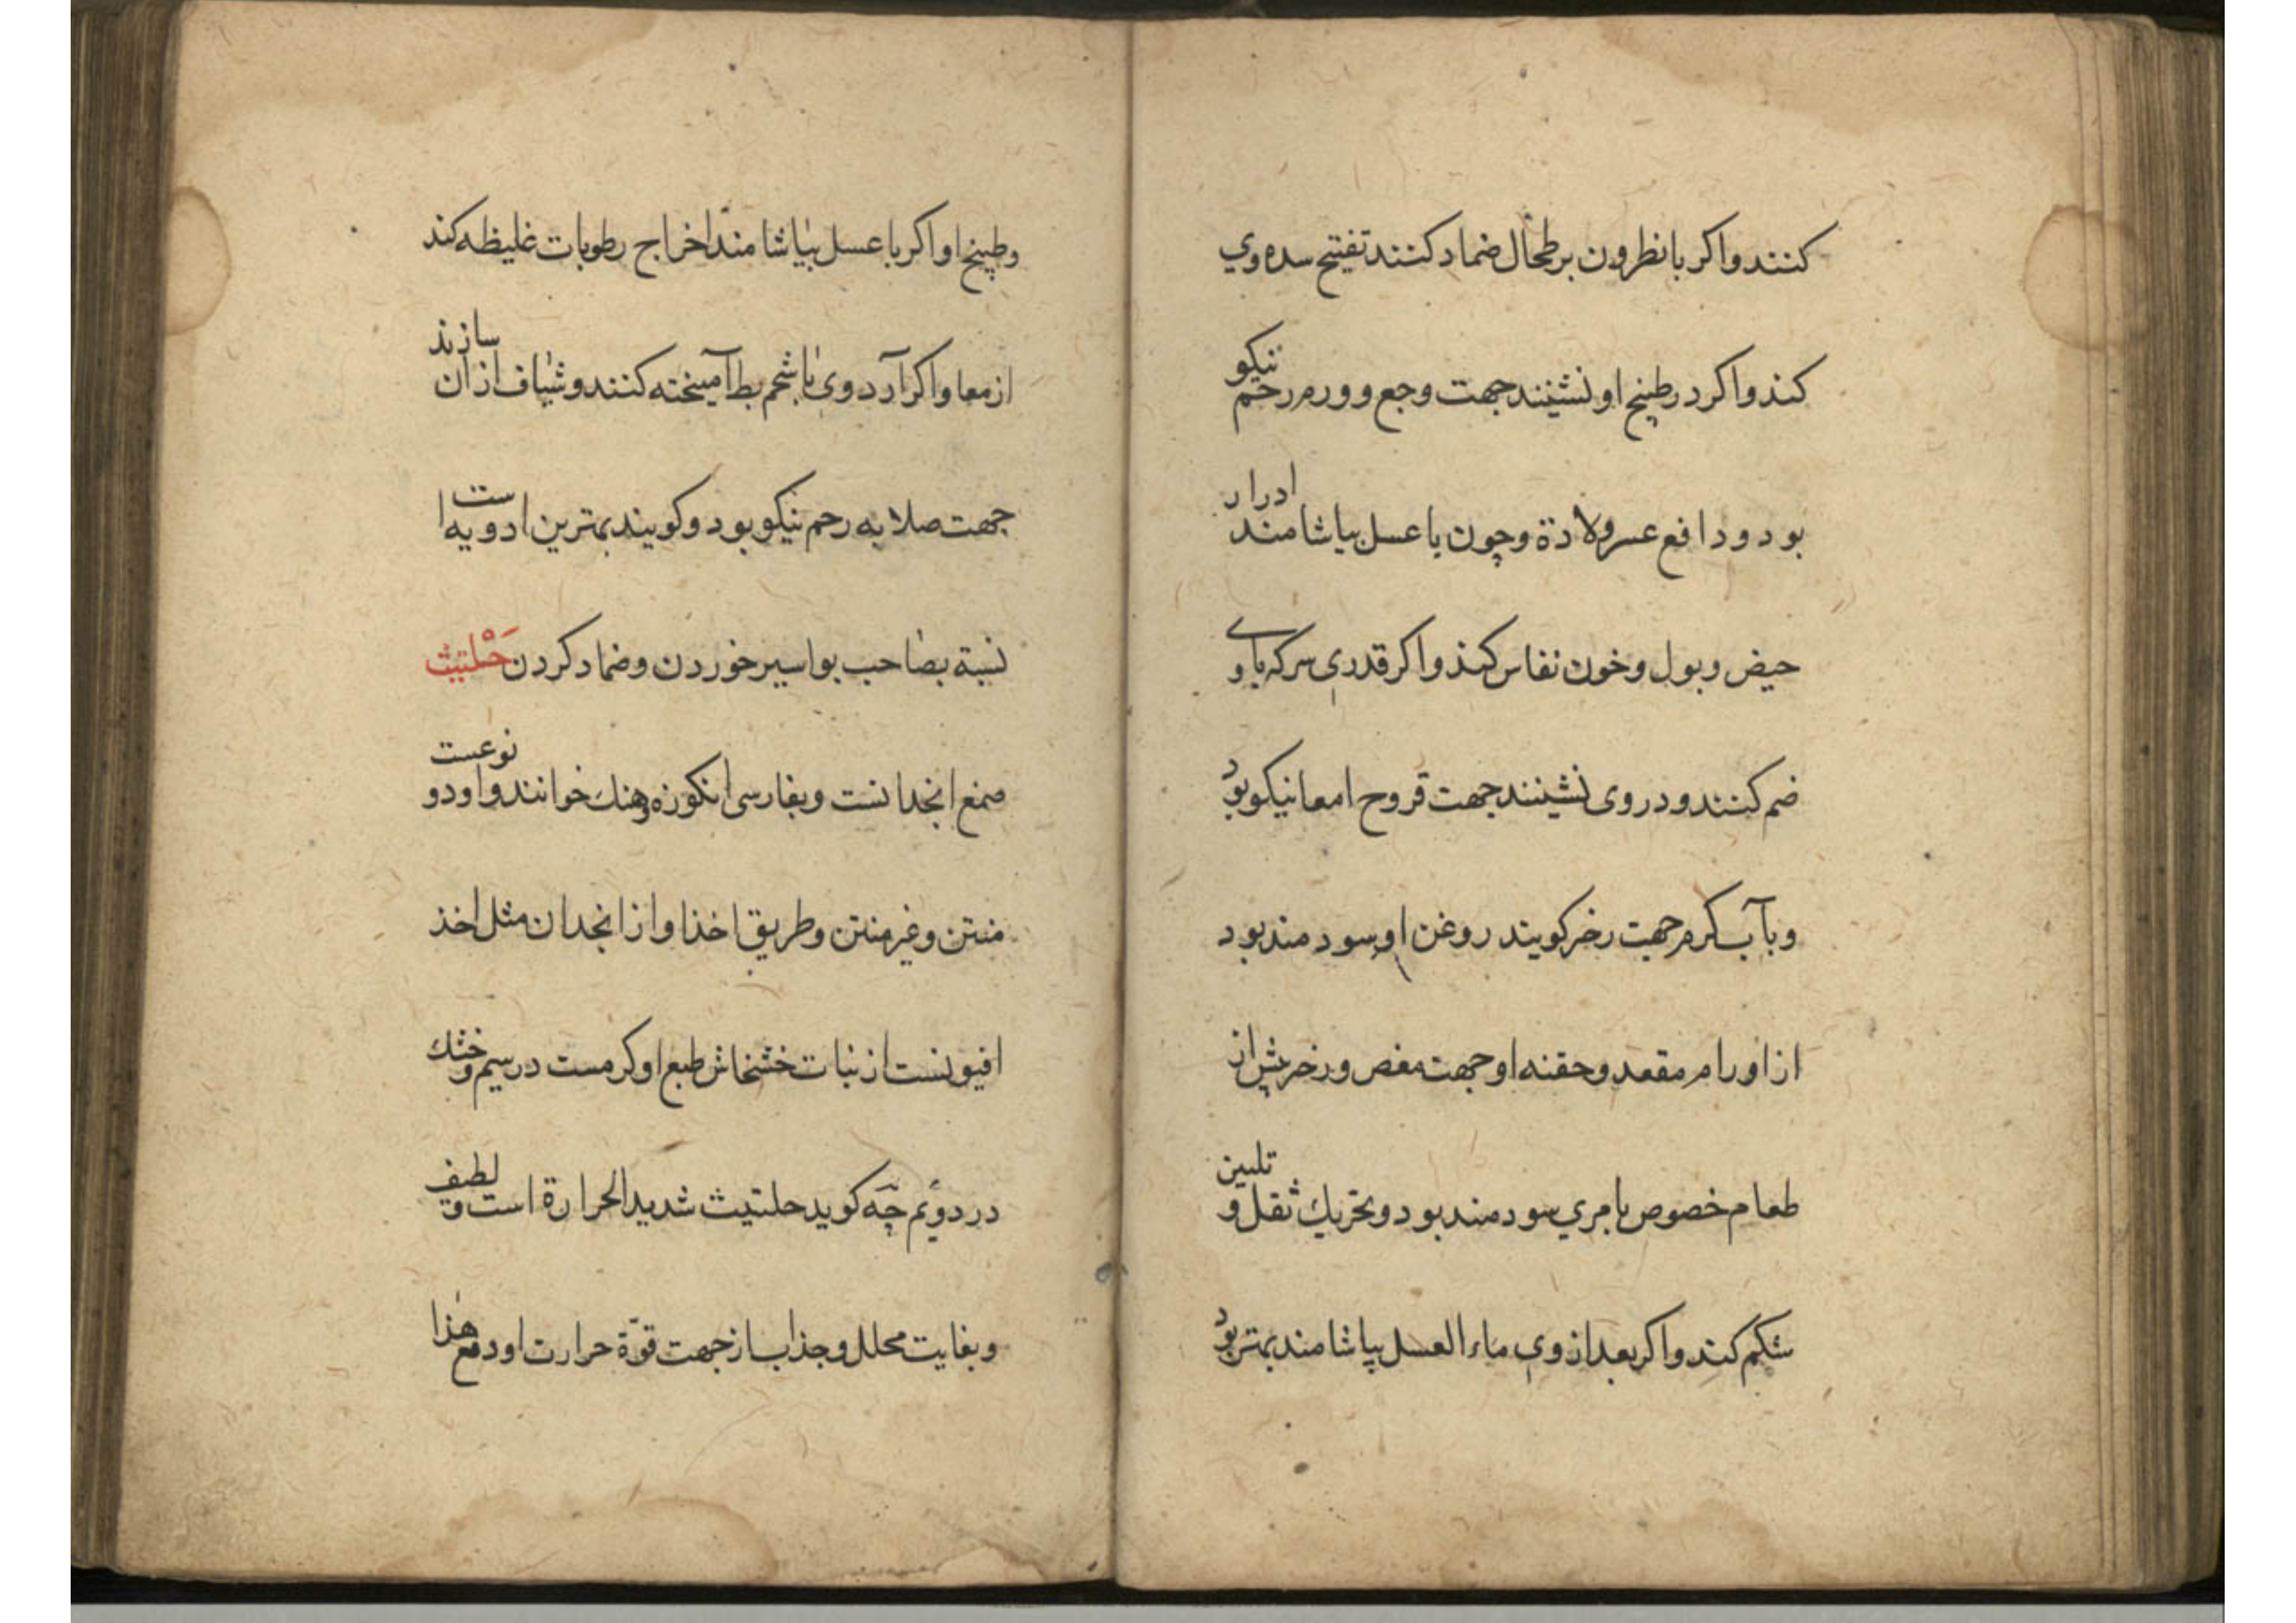 کنند و اکر با نطرون بر طحال ضماد کنند تفتیح سده وی
کند و اکر در طبیخ او نشینند جهت وجع و ورم رحم نیکو
بود و دافع عسر ولادة و چون با عسل بیاشامند ادرار
حیض و بول و خون نفاس کند و اکر قدری سرکه با وی
ضم کنند و در وی نشینند جهت قروح امعا نیکو بود
و با آب کرم جهت زخر کویند روغن او سودمند بود
از اورام مقعد و حقنه او جهت مغص و زخر پیش از
طعام خصوص با مری سودمند بود و تحریك ثقل و تلیین
شکم کند و اکر بعد از وی ماء العسل بیاشامند بهتر بود
و طبیخ او اکر با عسل بیاشامند اخراج رطوبات غلیظه کند
از معا و اکر آرد وی با شحم بط آمیخته کنند و شیاف از ان سازند
جهت صلابه رحم نیکو بود و کویند بهترین ادویه است
نسبة بصاحب بواسیر خوردن و ضماد کردن حَلْتیث
صمغ انجدانست و بفارسی انکوزه و هنك خوانند و او دو نوعست
منتن و غیر منتن و طریق اخذ او از انجدان مثل اخذ
افیونست از نبات خشخاش طبع او کرمست در سیم و خشك
در دویم چه کوید حلتیث شدید الحرارة است و لطیف
و بغایت محلل و جذاب از جهت قوّة حرارت او و مع هذا